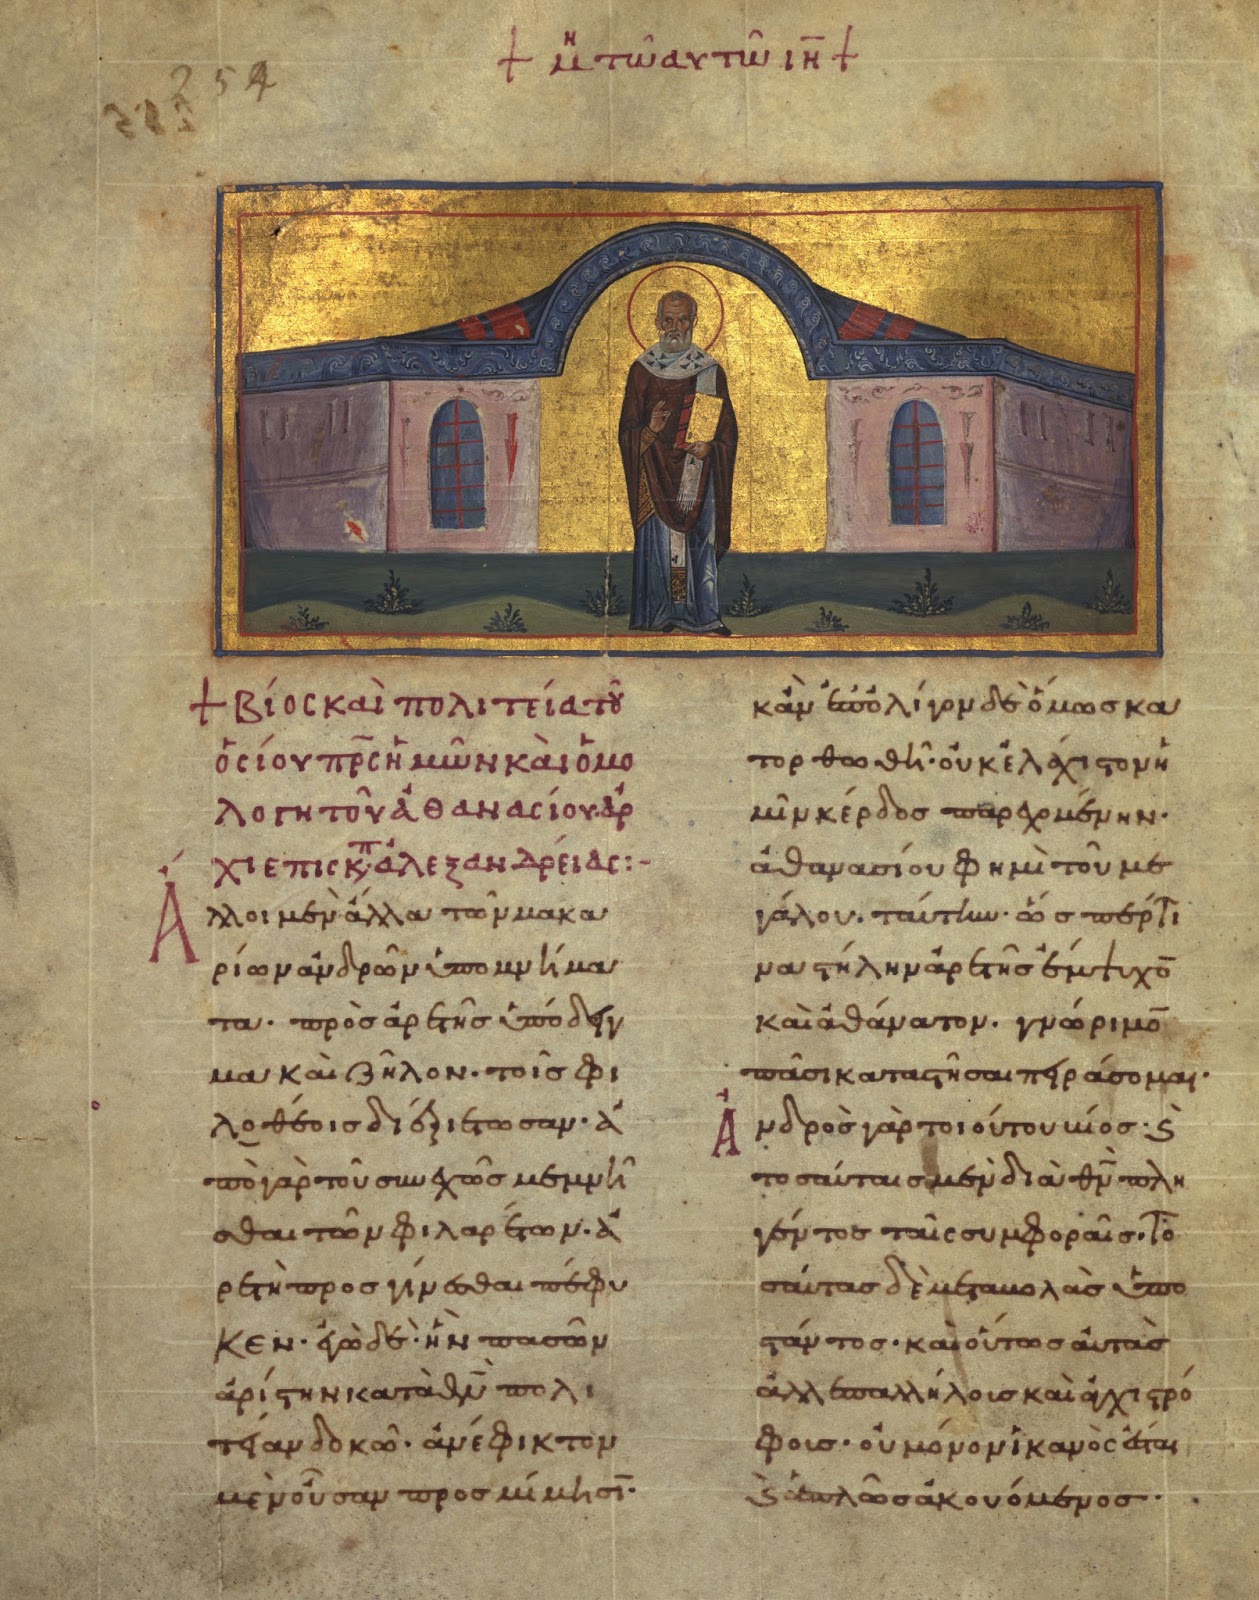 254
+ μη τῶ αὐτῶ ιη +
+ βίος καὶ πολιτεία τοῦ
ὁσίου πρς ἡμῶν καὶ ὁμο
λογητοῦ ἀθανασίου ἀρ
χιεπισκπ ἀλεξανδρείας:-
Ἄλλοι μὲν ἄλλα τῶν μακα
ρίων ἀνδρῶν ὑπομνήμα
τα· πρὸς ἀρετῆς ὑπόδειγ
μα καὶ ζῆλον· τοῖς φι
λοθέοις διεξιέτωσαν· ἀ
πὸ γὰρ τοῦ συνεχῶς μεμνῆ
σθαι τῶν φιλαρέτων· ἀ
ρετὴ προσγίνεσθαι πέφυ
κεν· ἐγὼ δὲ· ἣν πασῶν
ἀρίστην κατὰ θν πολι
τείαν δοκῶ· ἀνέφικτον
μὲν οὖσαν προς μίμησι·
κἂν ἐπ' ὀλίγον δὲ ὅμως κα
τορθωθῆ· οὐκ ἐλάχιστον ἡ
μῖν κέρδος παρεχομένην·
ἀθανασίου φημὶ τοῦ με
γάλου· ταύτην· ὥσπερ τι
να στήλην ἀρετῆς ἔμψυχο
καὶ ἀθάνατον· γνώριμο
πᾶσι καταστῆσαι πειράσομαι·
Ἀνδρὸς γὰρ τοιούτου βίος· καὶ
τοσαύταις μὲν διὰ θν πλη
γέντος ταῖς συμφοραῖς· το
σαύτας δὲ μεταβολὰς ὑπο
στάντος· καὶ οὕτως αὐτὰς
ἀλλεπαλλήλοις καὶ ἀγχιστρό
φοις· οὐ μόνον ἱκανὸς ἔσται
καὶ ἁπλῶς ἀκουόμενος·